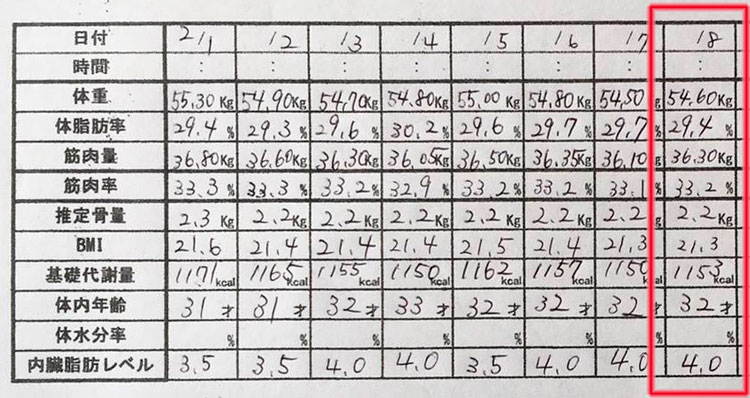 日付 2/1 /2 /3 /4 /5 /6 /7 /8
時間 : : : : : : : :
体重 55.30Kg 54.90Kg 54.70Kg 54.80Kg 55.00Kg 54.80Kg 54.50Kg 54.60Kg
体脂肪率 29.4% 29.3% 29.6% 30.2% 29.6% 29.7% 29.7% 29.4%
筋肉量 36.80Kg 36.60Kg 36.30Kg 36.05Kg 36.50Kg 36.35Kg 36.10Kg 36.30Kg
筋肉率 33.3% 33.3% 33.2% 32.9% 33.2% 33.2% 33.1% 33.2%
推定骨量 2.3Kg 2.2Kg 2.2Kg 2.2Kg 2.2Kg 2.2Kg 2.2Kg 2.2Kg
BMI 21.6 21.4 21.4 21.4 21.5 21.4 21.3 21.3
基礎代謝量 1171kcal 1165kcal 1155kcal 1150kcal 1162kcal 1157kcal 1150kcal 1153kcal
体内年齢 31才 31才 32才 33才 32才 32才 32 32才
体水分率 % % % % % % %
内臓脂肪レベル 3.5 3.5 4.0 4.0 3.5 4.0 4.0 4.0